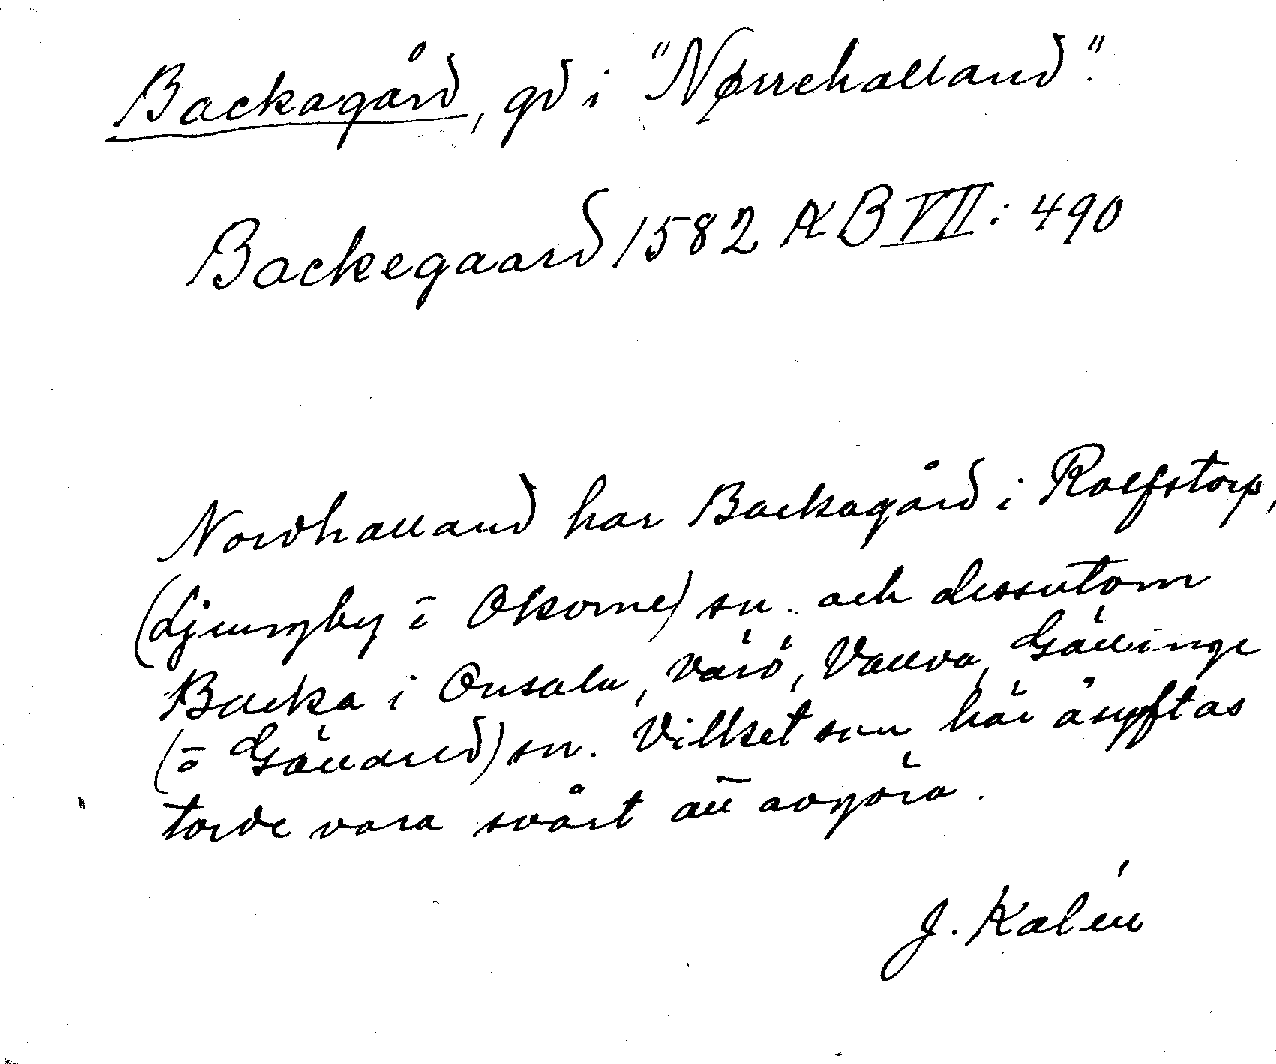 Backagård, gd i "Nørrehalland".
Backegaard 1582 KB VII: 490
Nordhalland har Backagård i Rolfstorp,
(Ljungby o Okome) sn. och dessutom
Backa i Onsala, Värö, Valla, Gällinge
(o Gällared) sn. Vilket som här åsyftas
torde vara svårt att avgöra.
J. Kalén